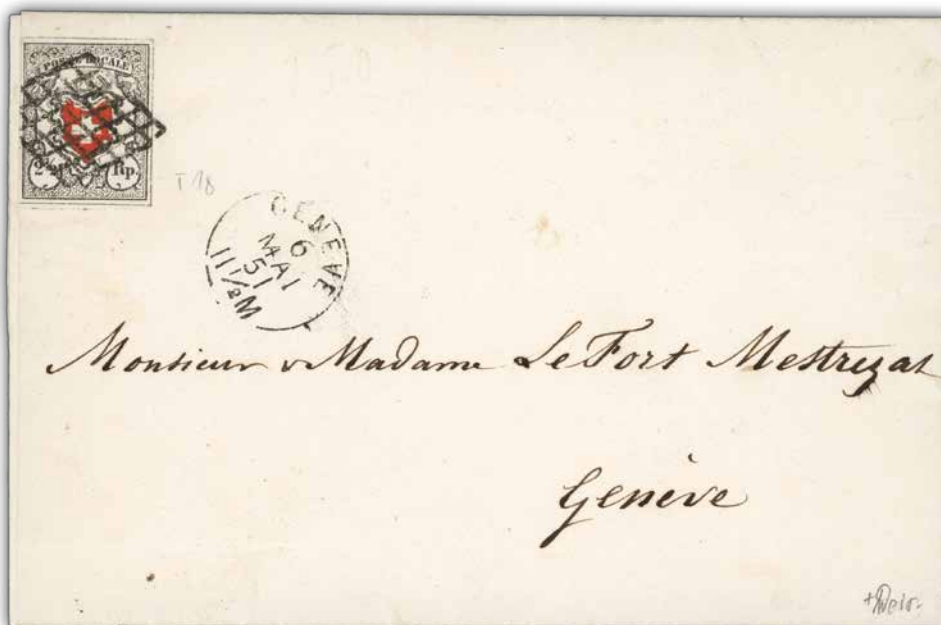 POSTE LOCALE
2½ Rp.
T 18
GENEVE
6
MAI
51
11½M
Monsieur & Madame Le Fort Mestrezat
Genève